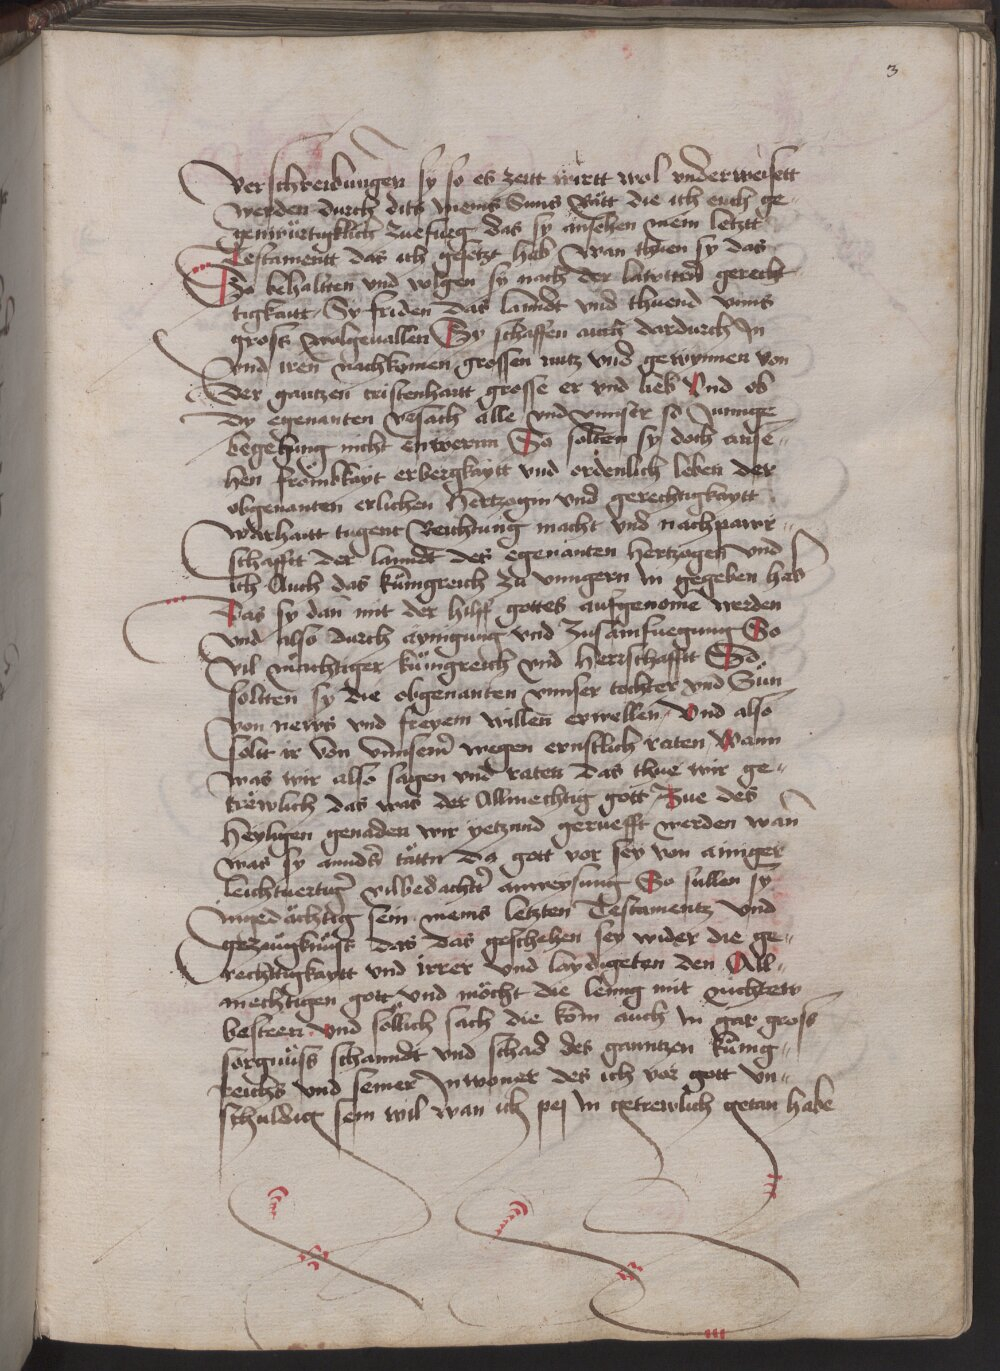 3
verschreibungen sy so es zeitt wirtt wol vnderweisett
werden durch dits meins Suns Rätt die ich euch ge„
genwürtigklich zuefueg das sy ansehen mein letzt
Testamentt das ich gesetzt hab Wan thuen sy das
So behaltten vnd volgen sy nach der gerecht
tigkaitt Sy friden das lanndt vnd thuend vnns
gross wolgeuallen Sy schaffen auch dardurch In
vnd iren nachkomen grossen nutz vnd gewynnen von
der gantzen cristenhaitt grosse er vnd lieb Vnd ob
dy egenanten vrsach alle vnd vnnser so Innige
begerung nicht enwerenn So solten sy doch anse„
hen frömbkayt erbergkaytt vnd ordenlich leben der
obgenanten erlichen hertzogin vnd gerechtigkaytt
warhaitt tugent Reichtung macht vnd nachpawr„
schafft der lanndt des egenanten hertzogen vnd
ich Auch das künigreich zu vnngern in gegeben hab
Das sy dan mit der hilff gottes aufgenome werden
vnd also durch aynigung vnd zusamfuegung So
vil mächtiger künigreich vnd herrschafft So
soltten sy die obgenanten vnnser tochter vnd Sün
von news vnd freyem willen erwellen Vnd also
solt ir von vnnserm wegen ernstlich raten Wann
was wir also sagen vnd raten das thue wir ge„
trewlich das was der Allmechtig gott Zue des
heyligen genaden wir yetzund geruefft werden wan
was sy annders tätten da gott vor sey von ainiger
leichtuertiger vilbedachter anweysung So sullen sy
ingedächtig sein meins letzten Testamentz vnd
gezeügknüss das das geschehen sey wider die ge„
rechttigkaytt vnd irrer vnd laydigeten den All„
mechtigen gott vnd möcht die leng mit nichten
besteen vnd söllich sach die kom auch in gar gross
sorgnüss schanndt vnd schad des ganntzen künig„
reichs vnd seiner Inwoner des ich vor gott vn„
schuldig sein wil wan ich pej in getrewlich getan habe